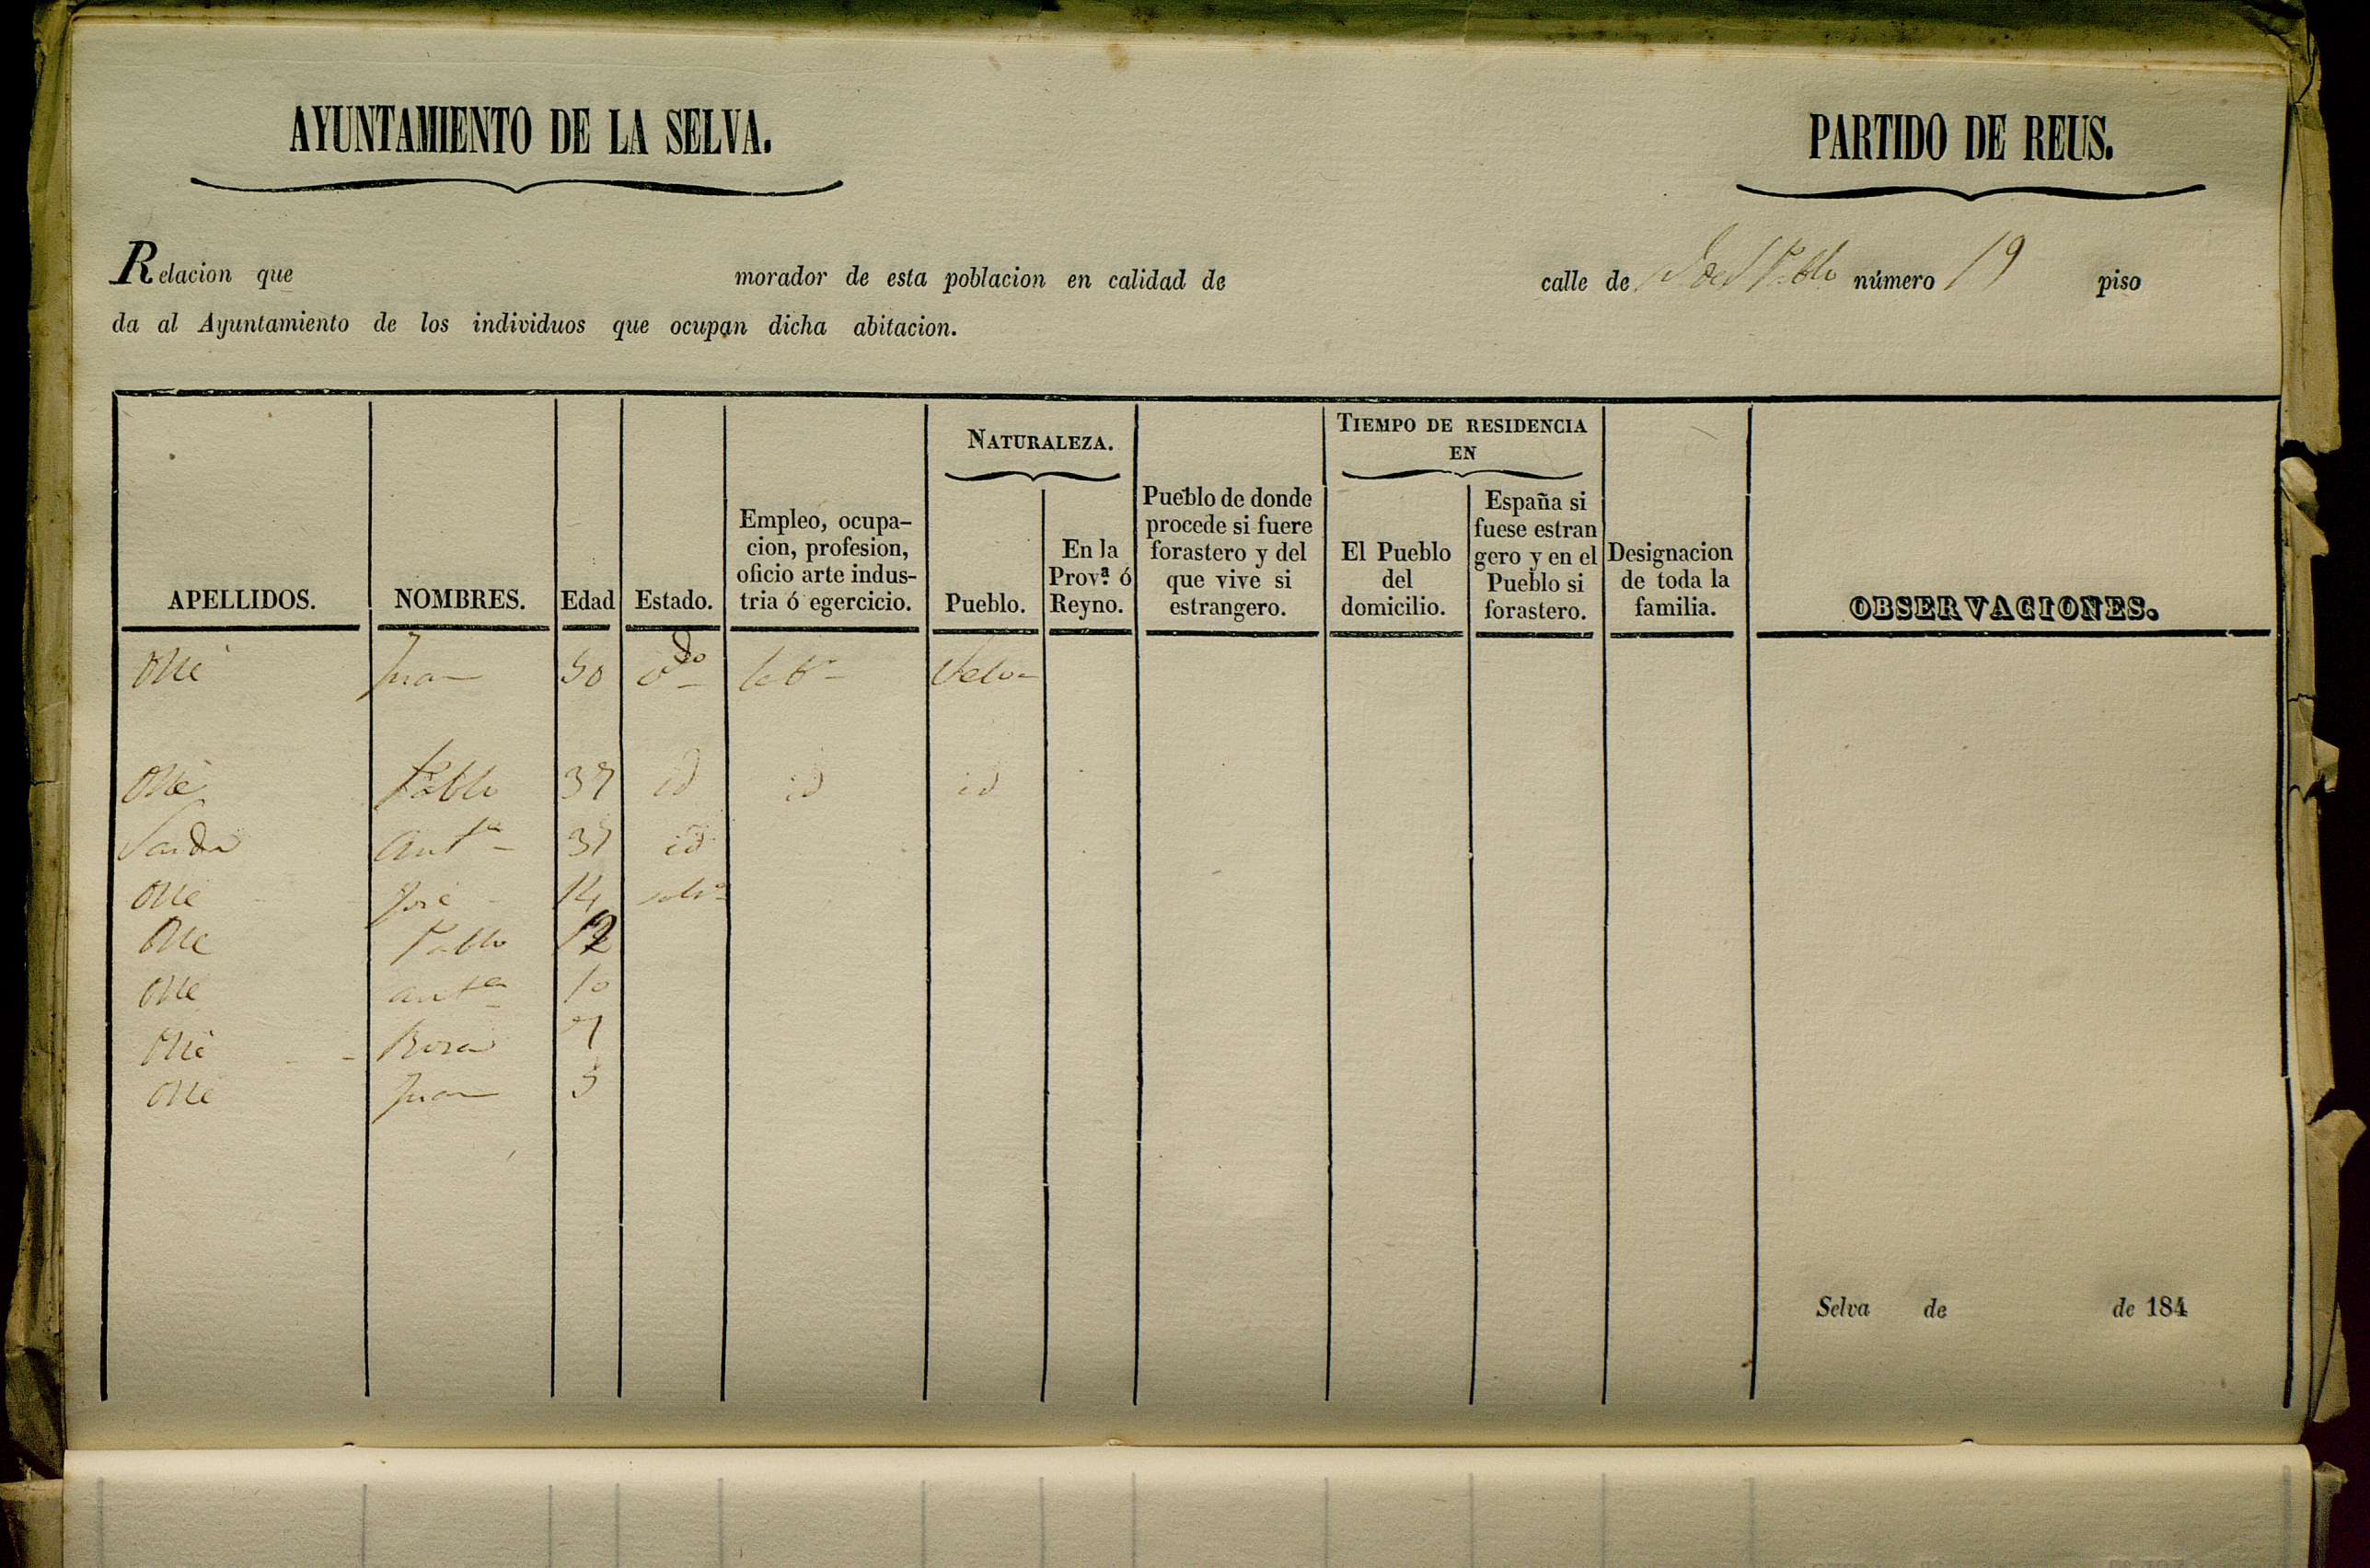 AYUNTAMIENTO DE LA SELVA.
PARTIDO DE REUS.
Relacion que morador de esta poblacion en calidad de calle de Pablo número 19 piso
da al Ayuntamiento de los individuos que ocupan dicha abitacion.
APELLIDOS.
NOMBRES.
Edad
Estado.
Empleo, ocupa-
cion, profesion,
oficio arte indus-
tria ó egercicio.
NATURALEZA.
Pueblo.
En la
Prov.ª ó
Reyno.
Pueblo de donde
procede si fuere
forastero y del
que vive si
estrangero.
TIEMPO DE RESIDENCIA
EN
El Pueblo
del
domicilio.
España si
fuese estran
gero y en el
Pueblo si
forastero.
Designacion
de toda la
familia.
OBSERVACIONES.
Ollé Juan 50 Selva
Ollé Pablo 37 id id id
Sarda Ant.ª 37 id
Ollé José 14
Ollé Pablo 12
Ollé Ant.ª 10
Ollé Rosa 7
Ollé Juan 5
Selva de de 184